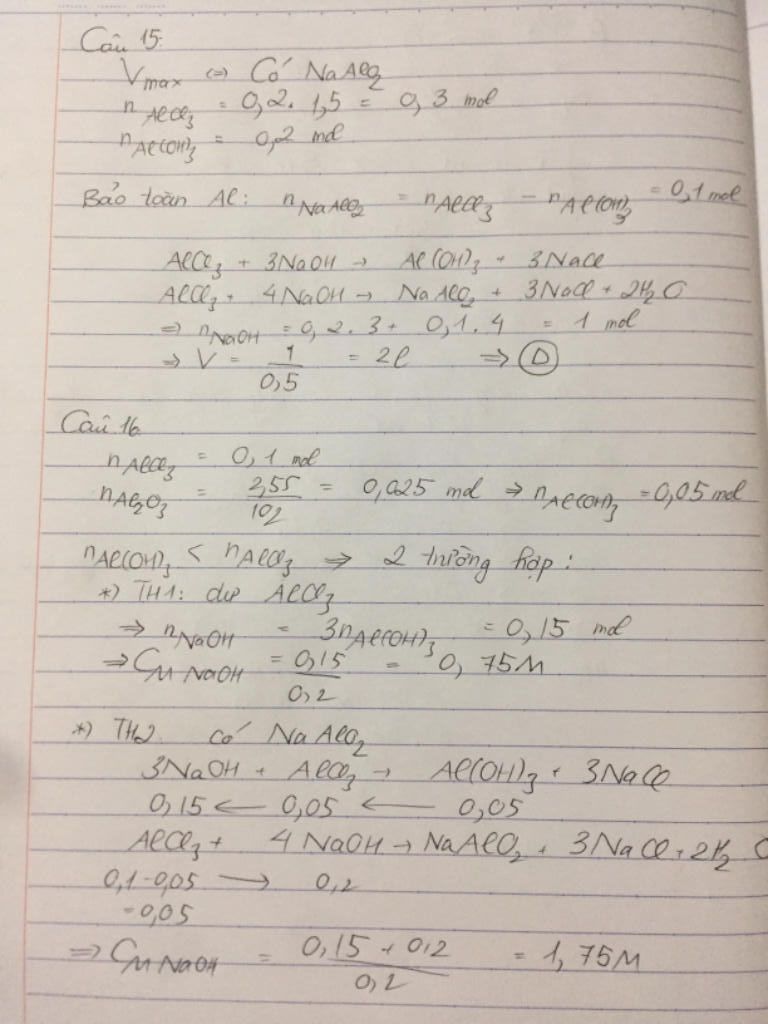 Câu 15:
Vmax <=> Có NaAlO2
nAlCl3 = 0,2. 1,5 = 0,3 mol
nAl(OH)3 = 0,2 mol
Bảo toàn Al: nNaAlO2 = nAlCl3 - nAl(OH)3 = 0,1 mol
AlCl3 + 3NaOH → Al(OH)3 + 3NaCl
AlCl3 + 4NaOH → NaAlO2 + 3NaCl + 2H2O
=> nNaOH = 0,2.3 + 0,1.4 = 1 mol
=> V = 1/0,5 = 2l => D
Câu 16.
nAlCl3 = 0,1 mol
nAl2O3 = 2,55/102 = 0,025 mol => nAl(OH)3 = 0,05 mol
nAl(OH)3 < nAlCl3 => 2 trường hợp:
*) TH1: dư AlCl3
=> nNaOH = 3nAl(OH)3 = 0,15 mol
=> CM NaOH = 0,15/0,2 = 0,75M
*) TH2. có NaAlO2
3NaOH + AlCl3 → Al(OH)3 + 3NaCl
0,15 ← 0,05 ← 0,05
AlCl3 + 4NaOH → NaAlO2 + 3NaCl + 2H2O
0,1-0,05 → 0,2
=0,05
=> CM NaOH = 0,15 + 0,2/0,2 = 1,75M